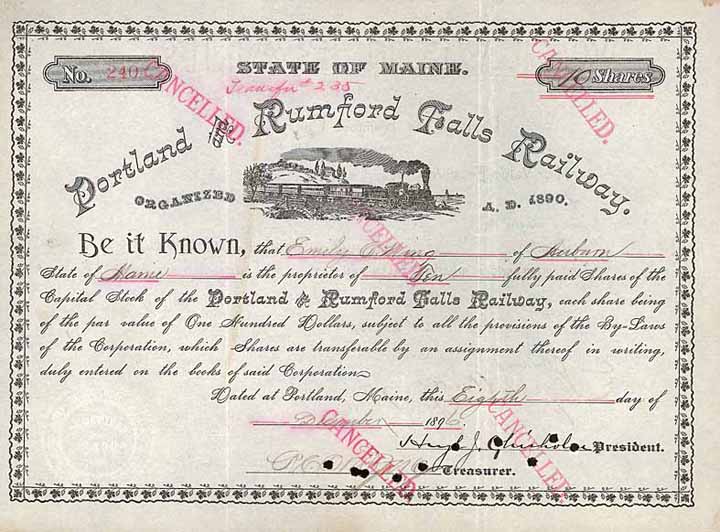 STATE OF MAINE.
No. 240
10 Shares
CANCELLED.
CANCELLED.
Transfer # 235
Portland and Rumford Falls Railway.
ORGANIZED A. D. 1890.
Be it Known, that Emily King of Auburn
State of Maine is the proprietor of Ten fully paid Shares of the
CANCELLED.
Capital Stock of the Portland and Rumford Falls Railway, each share being
of the par value of One Hundred Dollars, subject to all the provisions of the By-Laws
of the Corporation, which Shares are transferable by an assignment thereof in writing,
duly entered on the books of said Corporation.
Dated at Portland, Maine, this Eighth day of
December 1896
CANCELLED.
CANCELLED.
Hugh J. Chisholm President.
Treasurer.